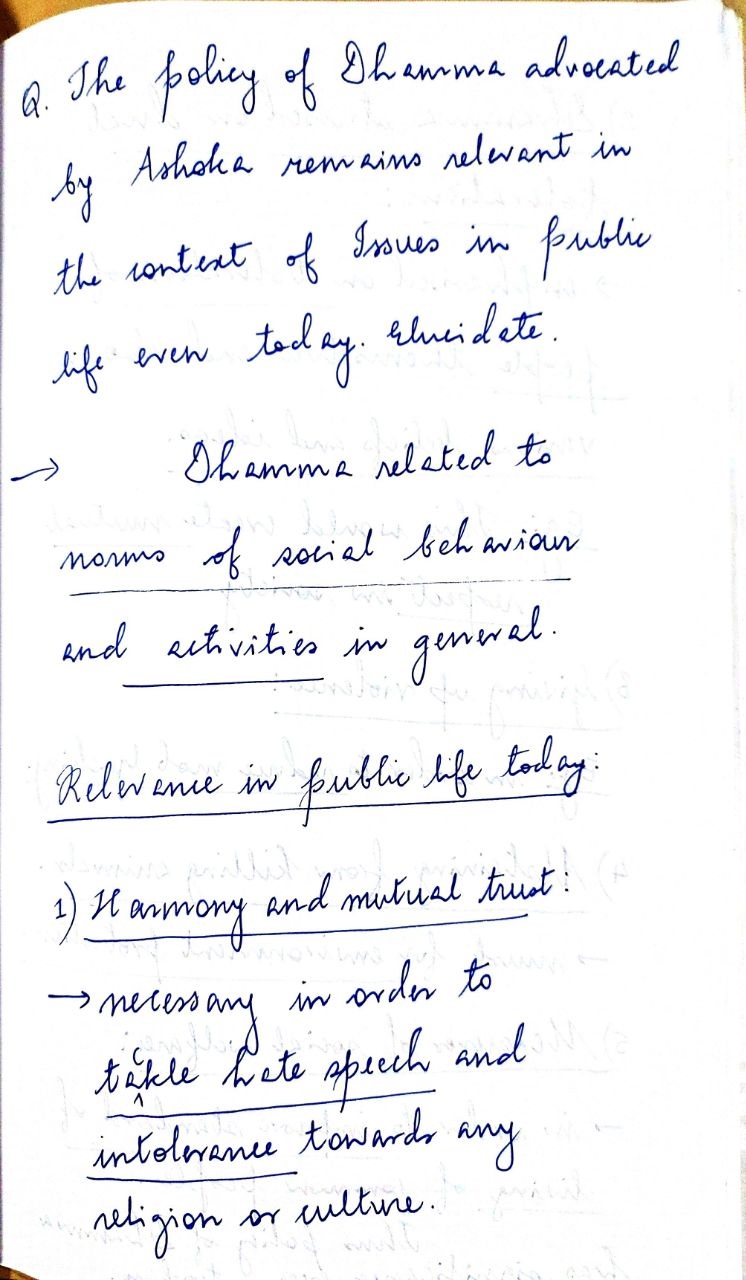 Q. The policy of Dhamma advocated
by Ashoka remains relevant in
the context of Issues in public
life even today. Elucidate.
→ Dhamma related to
norms of social behaviour
and activities in general.
Relevance in public life today:
1) Harmony and mutual trust:
→ necessary in order to
tackle hate speech and
intolerance towards any
religion or culture.